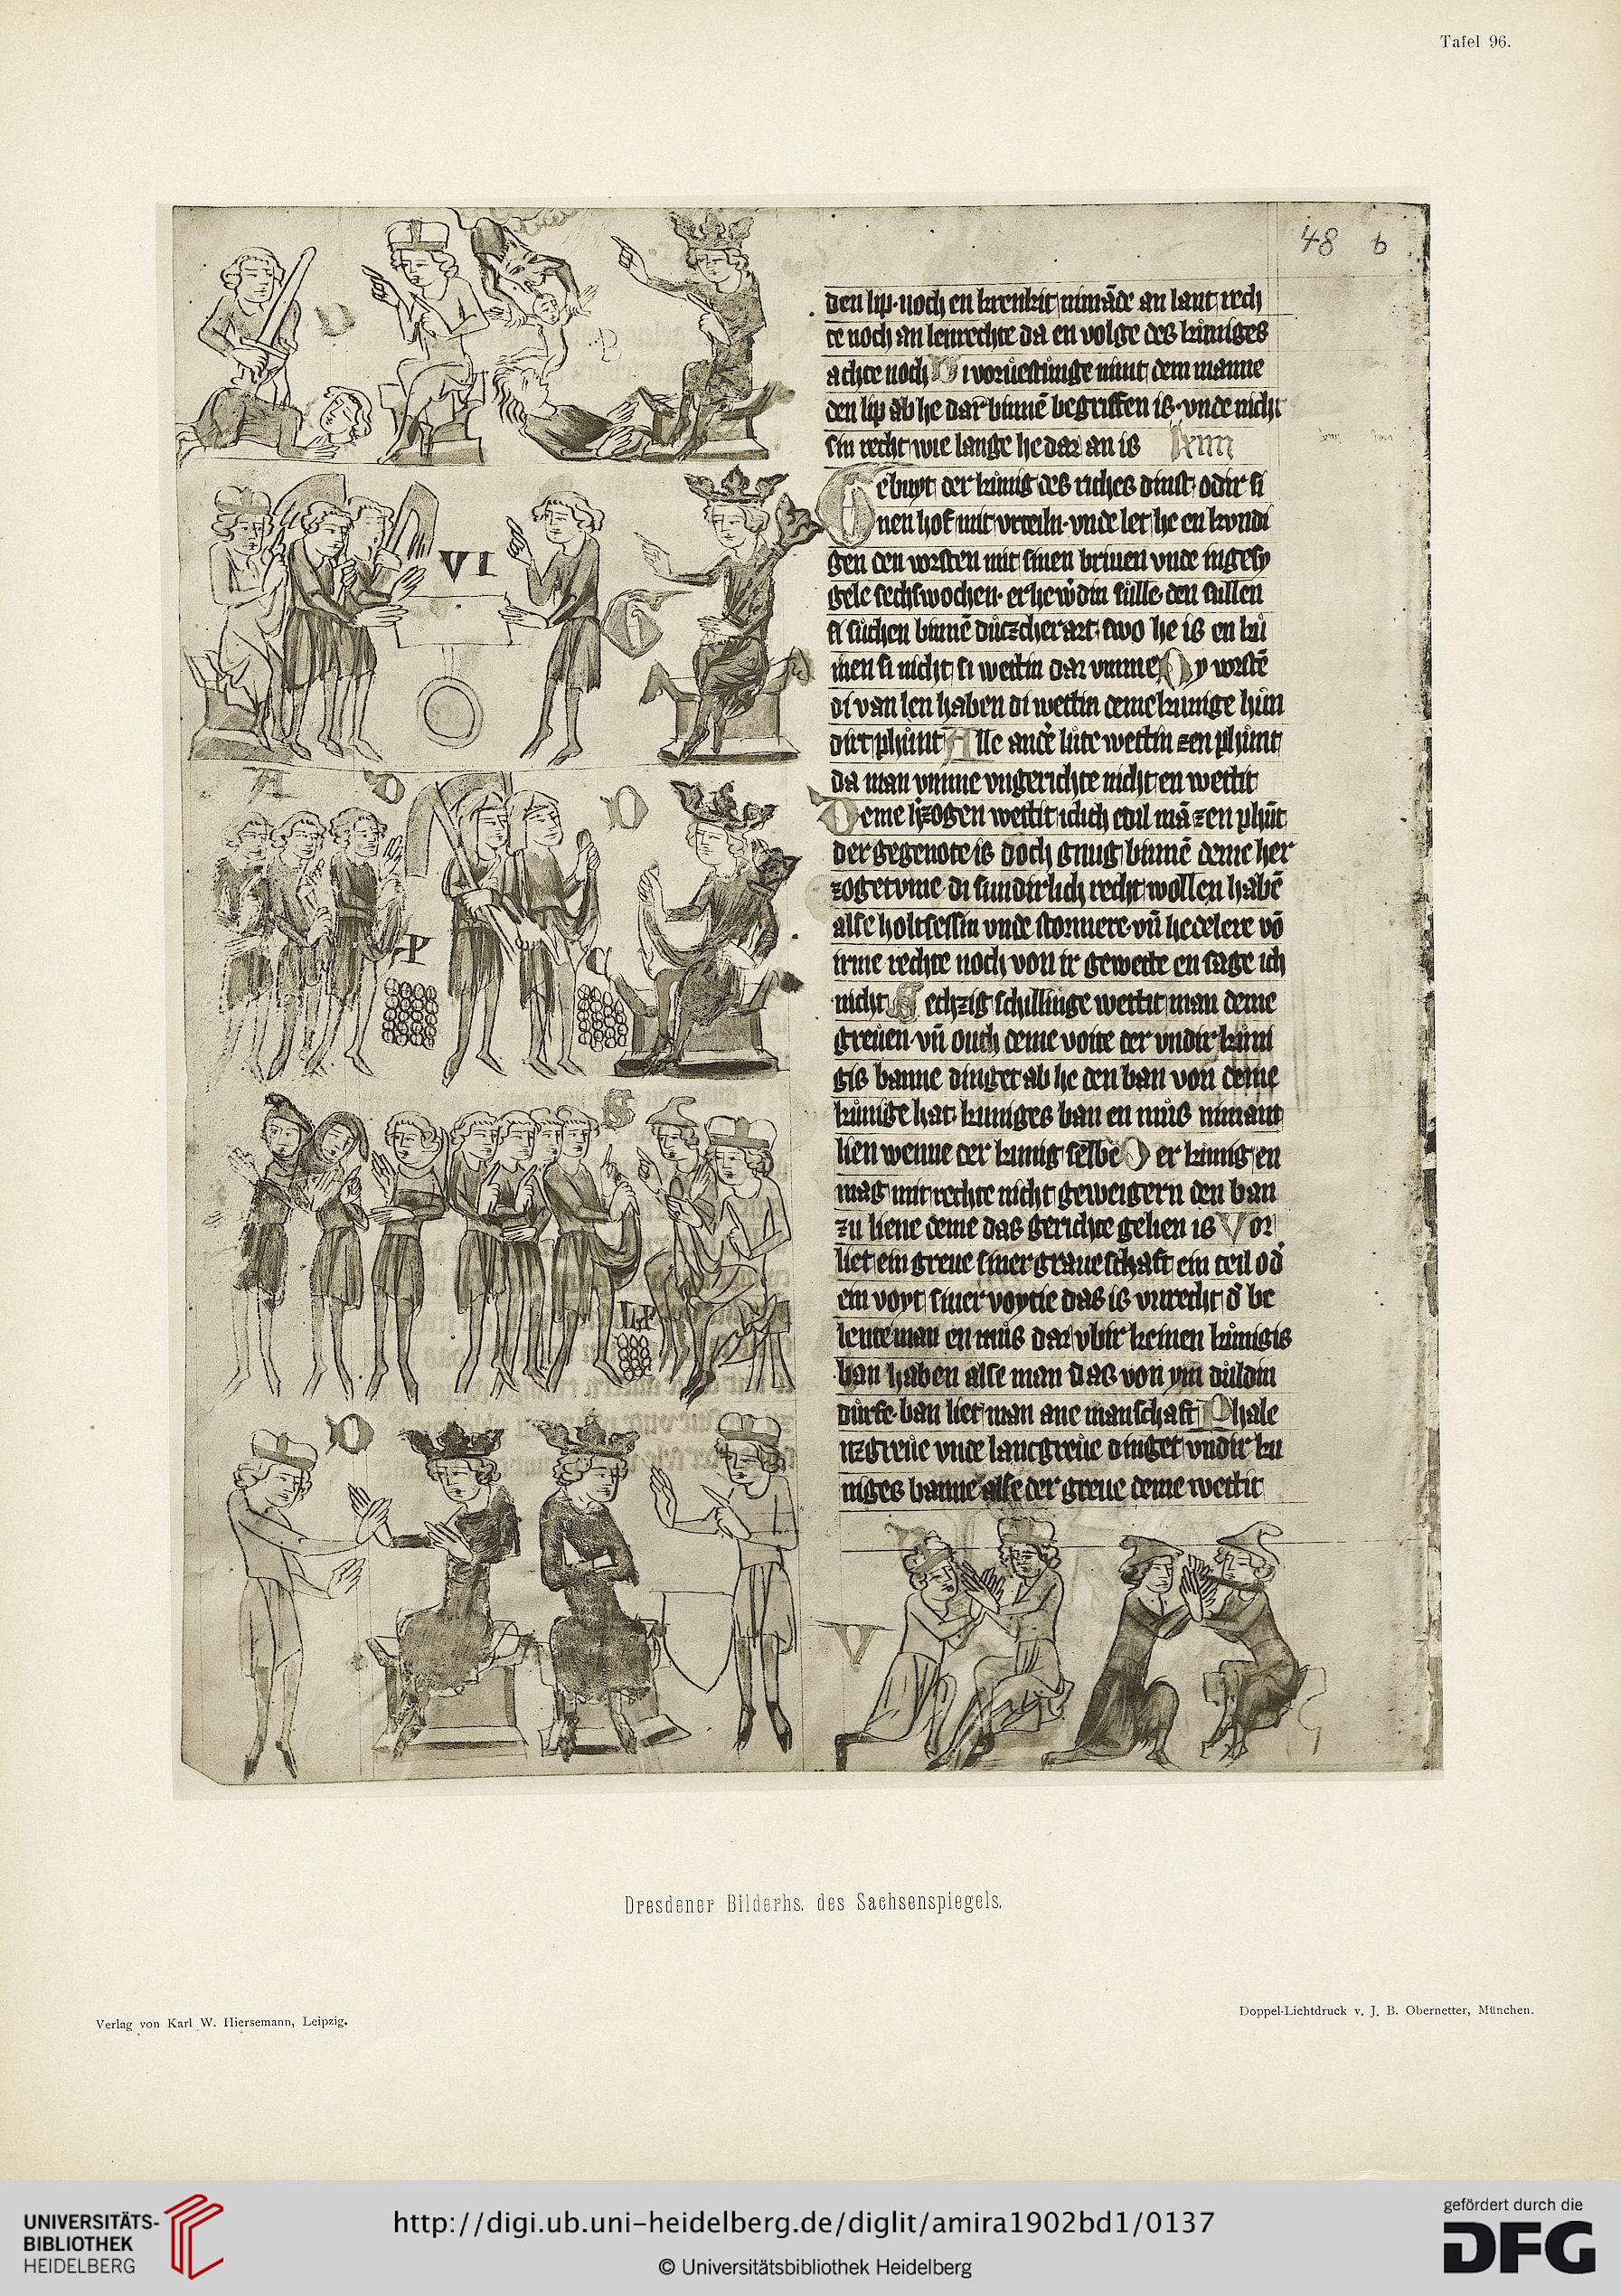 Tafel 96.
48 b
den lip noch en krenkit nimāde an lant rech
te noch an lenrechte da en volge des kuniges
achte noch Di vorvestunge nimt dem manne
den lip ab he dar binnē begriffen is vnde nicht
sin recht wie lange he dar an is
Gebuyt der kunig des riches dinst odir si
nen hof mit vrteiln vnde let he en kundi
gen den vorsten mit sinen briuen vnde ingesy
gele sechs wochen er he
si suchen binnē duczscher art swo he is en ku
men si nicht si wettin dar vmme Dy vorstē
di van len haben di wettin deme kunige hun
dirt phunt Alle andere lute wettin zen phunt
da man vmme vngerichte nicht en wettit
Deme herzogen wettit iclich edil mā zen phūt
der gegenote is doch gnug binnē deme her
zogetvme di sundirlich recht wollen habē
alse holtsessin vnde stormere vn̄ hedelere vō
irme rechte noch von ir gewette en sage ich
nicht Sechzig schillinge wettit man deme
greuen vn̄ ouch deme voite der vndir kuni
gis banne dinget ab he den ban von deme
kunige hat kuniges ban en mus nimant
lien wenne der kunig selbe Der kunig en
mag mit rechte nicht geweigern den ban
zu liene deme das gerichte gelien is Vor
liet ein greue siner graueschaft ein teil od
ein voyt siner voytie das is vnrecht d be
lente man en mus dar vbir keinen kunigis
ban haben alse man das von ym duldin
durfe ban liet man ane manschaft Phale
nzgreue vnde lantgreue dinget vndir ku
niges banne alse der greue deme wettit
D
VI
G
A
D
D
P
C
S
LP
D
V
Dresdener Bilderhs. des Sachsenspiegels.
Verlag von Karl W. Hiersemann, Leipzig.
Doppel-Lichtdruck v. J. B. Obernetter, München.
UNIVERSITÄTS-
BIBLIOTHEK
HEIDELBERG
http://digi.ub.uni-heidelberg.de/diglit/amira1902bd1/0137
© Universitätsbibliothek Heidelberg
gefördert durch die
DFG